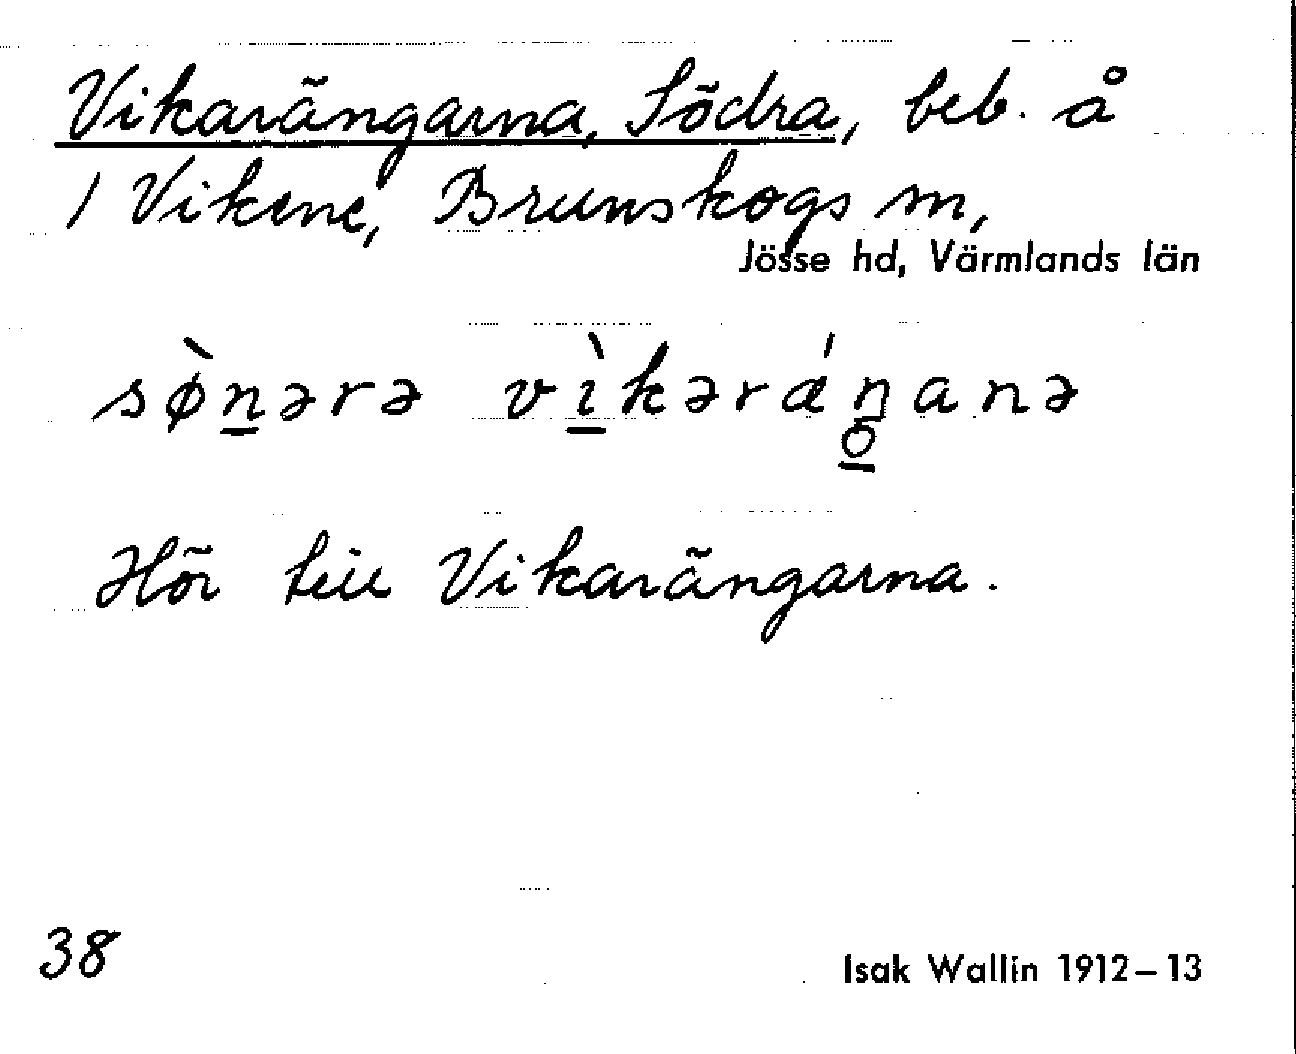 Vikarängarna, Södra, beb. å
1 Vikene, Brunskogs sn,
Jösse hd, Värmlands län
sø̀n̠ərə vì̠kərǽŋ̠̊anə
Hör till Vikarängarna.
38
Isak Wallin 1912–13